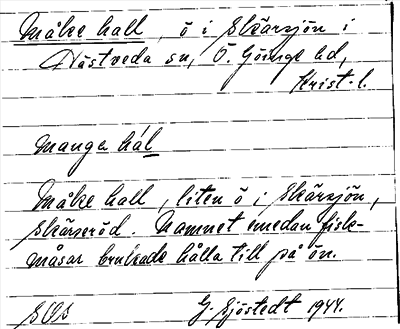 Måke hall, ö i Skärsjön i
Västveda sn, Ö. Göinge hd,
Krist. l.
mauga hál
Måke hall, liten ö i Skärsjön,
Skärseröd. Namnet emedan fisk-
måsar brukade hålla till på ön.
SOs G. Sjöstedt 1944.